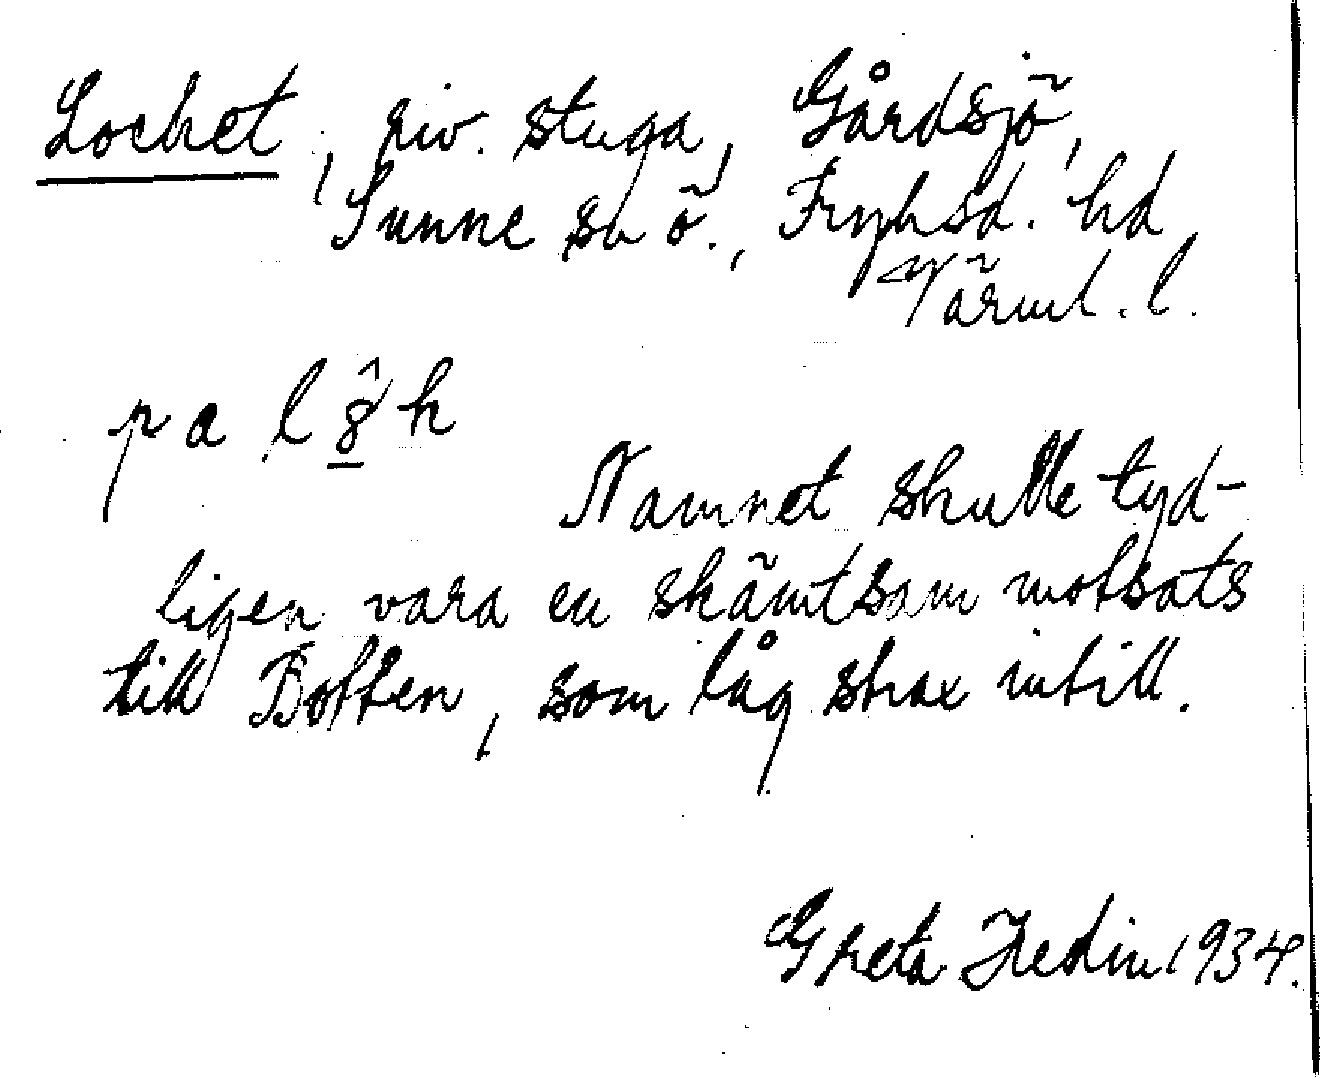 Locket, riv. stuga, Gårdsjö,
Sunne sn ö., Fryksd. hd,
Värml. l.
pa l k
Namnet skulle tyd-
ligen vara en skämtsam motsats
till Botten, som låg strax intill.
Greta Hedin 1934.